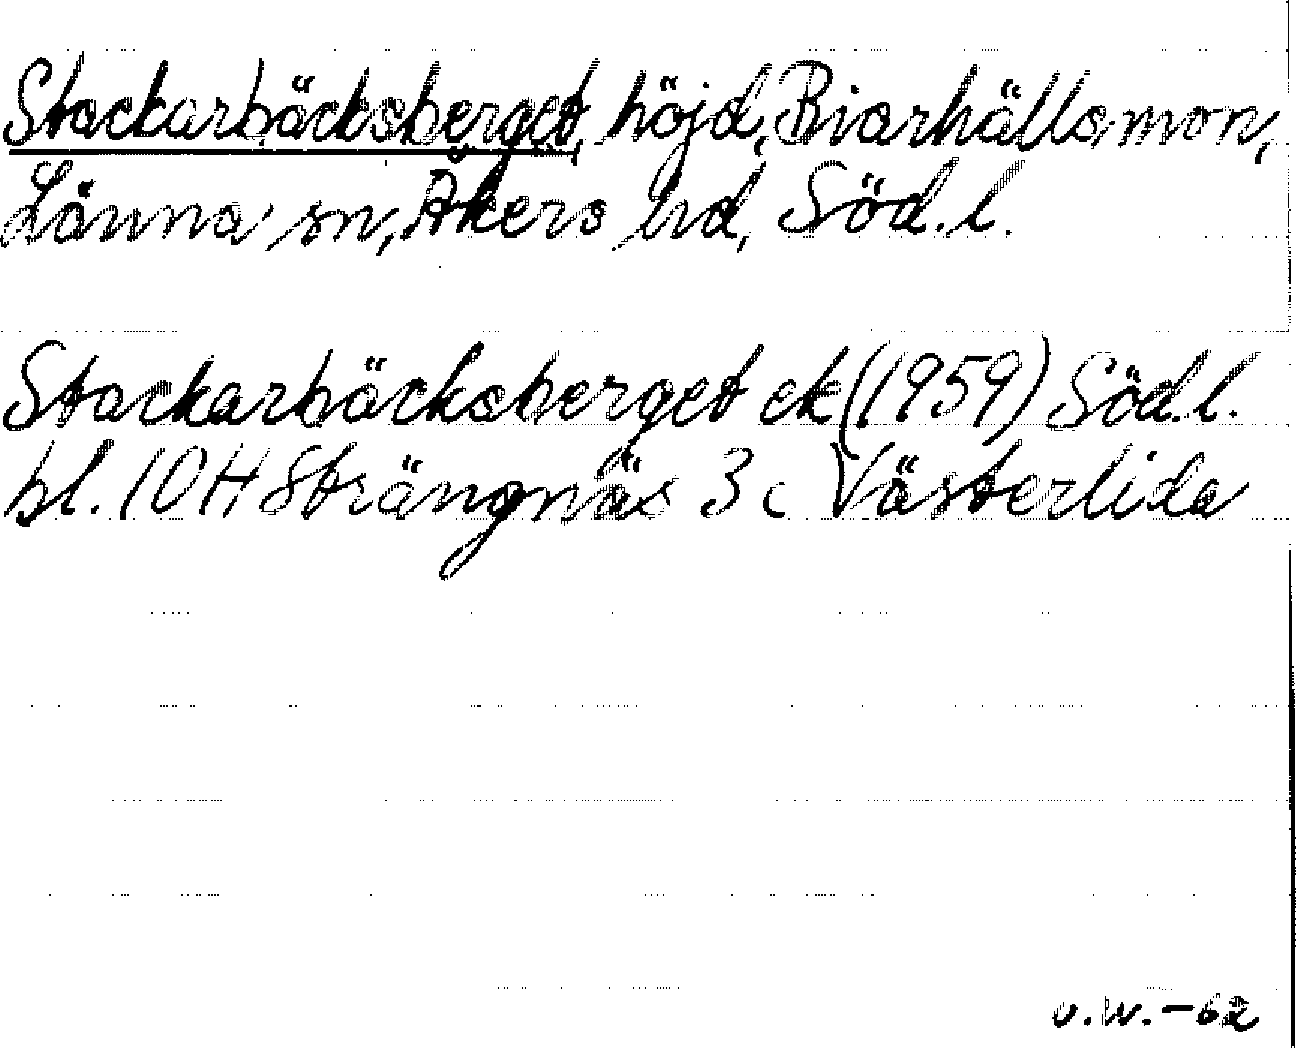 Stackarbäcksberget, höjd, Biarhällsmon,
Länna sn, Åkers hd, Söd.l.
Stackarbäcksberget ek (1959) Söd.l.
bl. 10H Strängnäs 3c Västerlida
v.W.-62